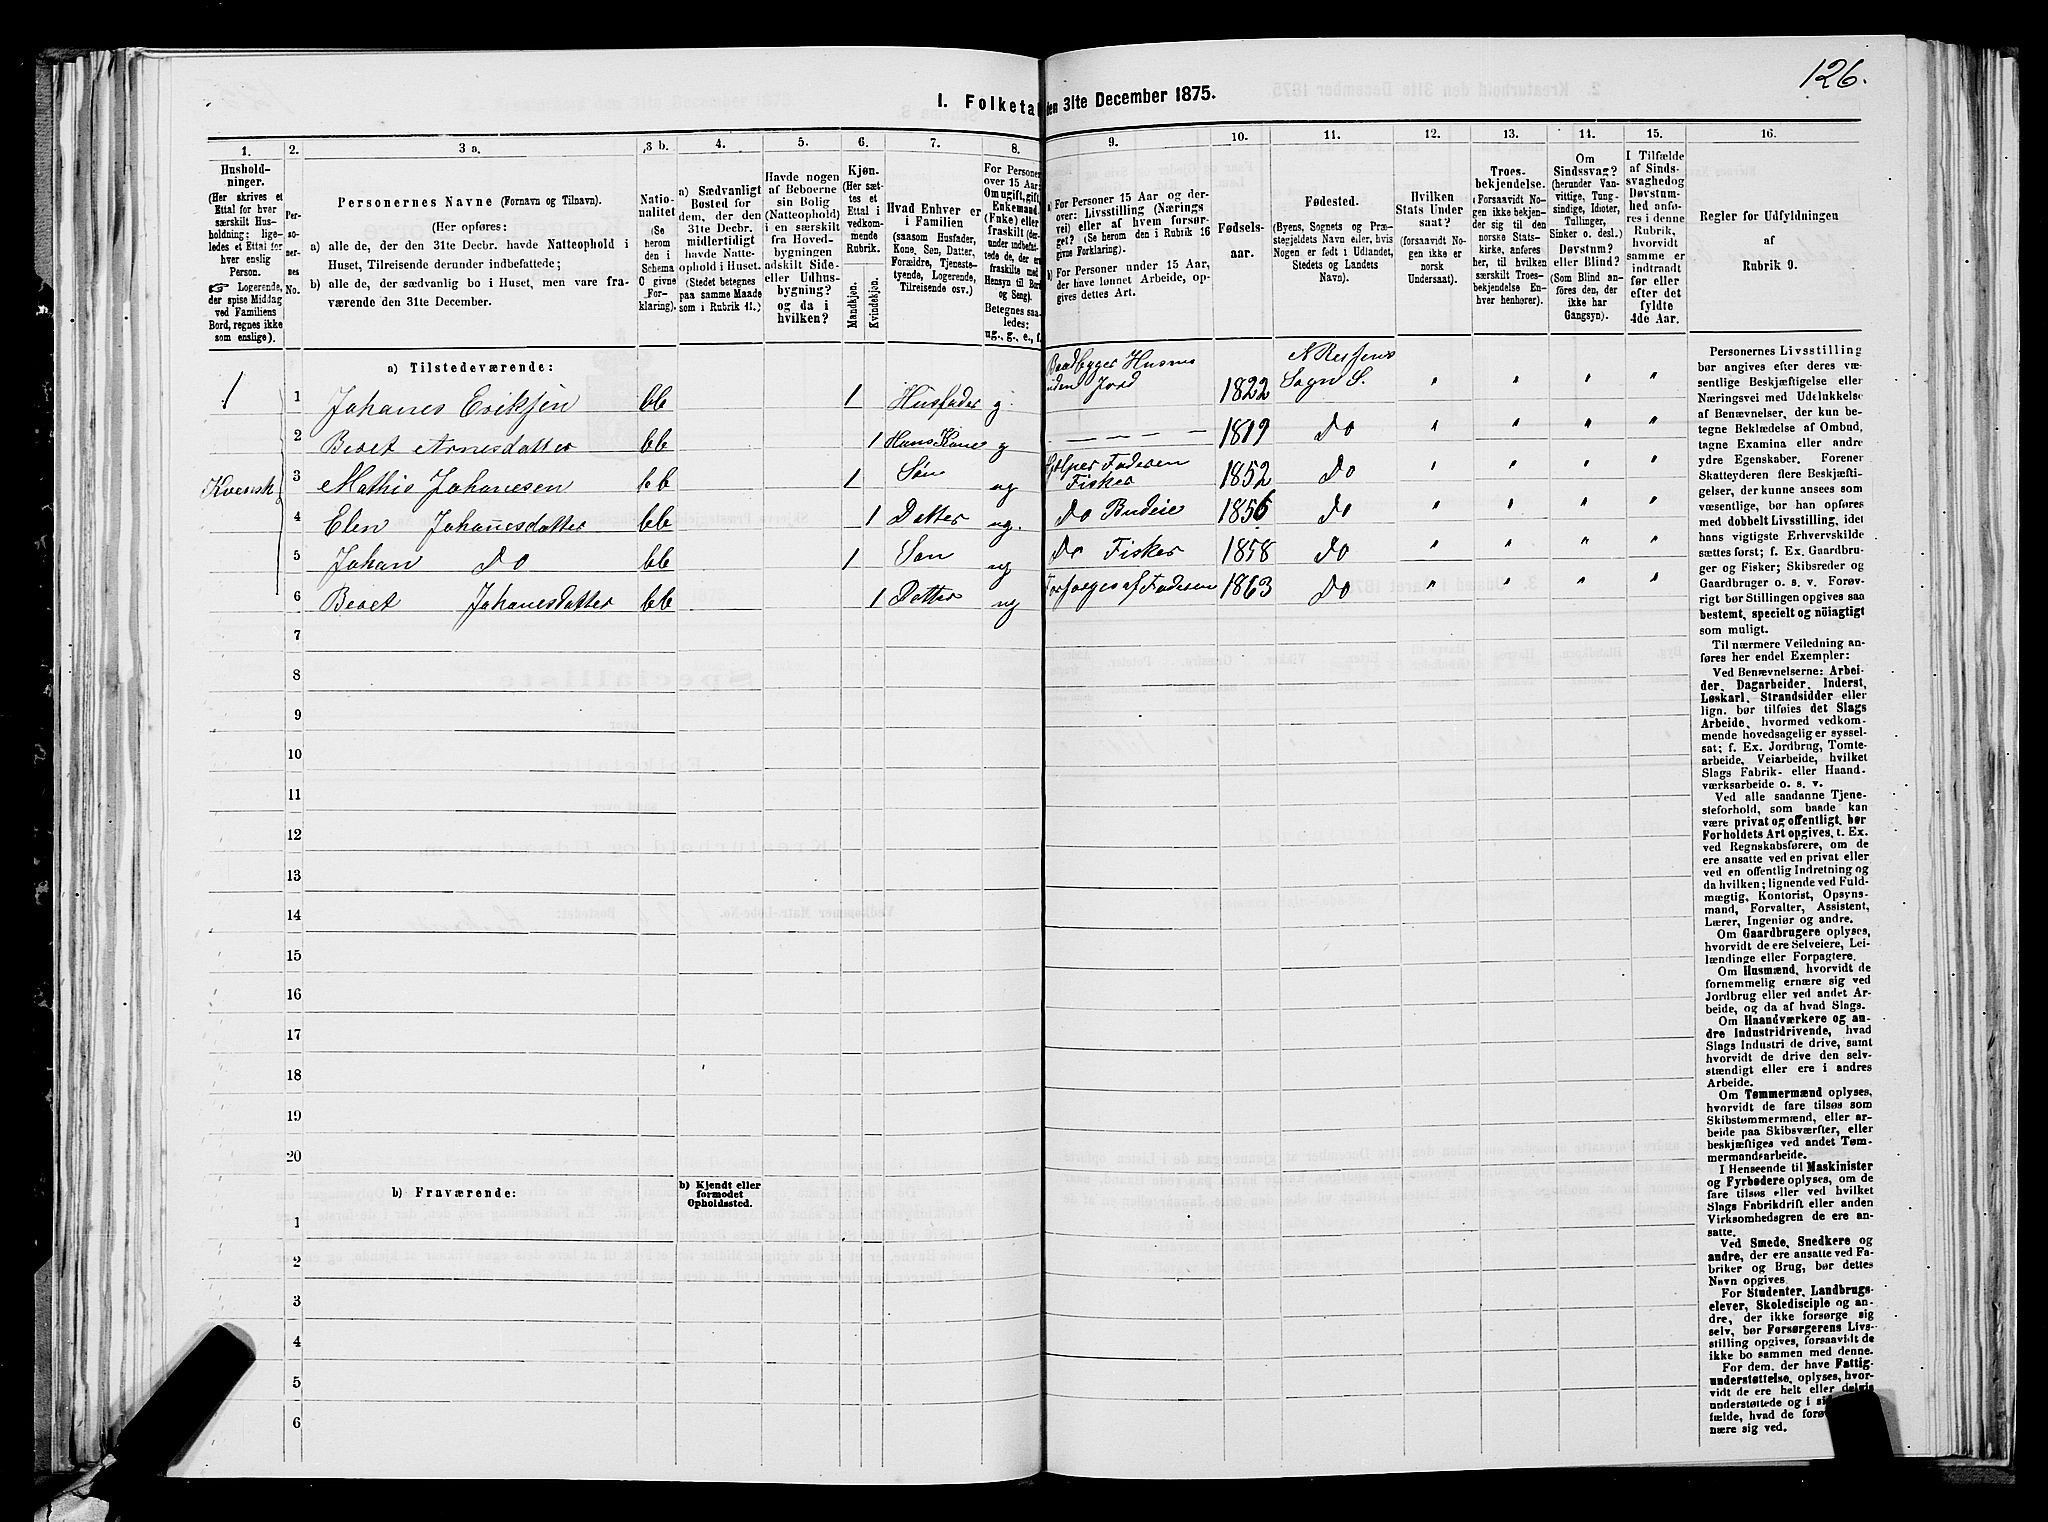 126.
I. Folketal
den 31te December 1875.
1. 2. 3 a. 3 b. 4. 5. 6. 7. 8. 9. 10. 11. 12. 13. 14. 15. 16.
Hushold-
ninger.
(Her skrives et
Ettal for hver
særskilt Hus-
holdning; lige-
ledes et Ettal for
hver enslig
Person.
☞ Logerende,
der spise Middag
ved Familiens
Bord, regnes ikke
som enslige).
Per-
so-
ner-
nes
No.
Personernes Navne (Fornavn og Tilnavn).
(Her opføres:
a) alle de, der den 31te Decbr. havde Natteophold i
Huset, Tilreisende derunder indbefattede;
b) alle de, der sædvanlig bo i Huset, men vare fra-
værende den 31te December.
Natio-
nalitet
(Se
herom
den i
Schema
C givne
For-
klaring).
a) Sædvanligt
Bosted for
dem, der den
31te Decbr.
midlertidigt
havde Natte-
ophold i Huset.
(Stedet betegnes
paa samme Maade
som i Rubrik 11.)
Havde nogen
af Beboerne
sin Bolig
(Natteophold)
i en særskilt
fra Hoved-
bygningen
adskilt Side-
eller Udhus-
bygning?
og da i
hvilken?
Kjøn.
(Her sæt-
tes et
Ettal i
vedkom-
mende
Rubrik.
Mandkjøn.
Kvindekjøn.
Hvad Enhver er
i Familien
(saasom Husfader,
Kone, Søn, Datter,
Forældre, Tjeneste-
tyende, Logerende,
Tilreisende osv.)
For Personer
over 15 Aar:
Om ugift, gift,
Enkemand
(Enke) eller
fraskilt (der-
under indbefat-
tede de, der ere
fraskilte med
Hensyn til Bord
og Seng).
Betegnes saa-
ledes:
ug., g., e., f.
a) For Personer 15 Aar og der-
over: Livsstilling (Nærings-
vei) eller af hvem forsør-
get? (Se herom den i Rubrik 16
givne Forklaring).
b) For Personer under 15 Aar,
der have lønnet Arbeide, op-
gives dettes Art.
Fødsels-
aar.
Fødested.
(Byens, Sognets og Præ-
stegjeldets Navn eller, hvis
Nogen er født i Udlandet,
Stedets og Landets
Navn).
Hvilken
Stats Under-
saat?
(forsaavidt No-
gen ikke er
norsk
Undersaat).
Troes-
bekjendelse.
(Forsaavidt No-
gen ikke bekjen-
der sig til den
norske Stats-
kirke, anføres
her, til hvilken
særskilt Troes-
bekjendelse En-
hver henhører).
Om
Sindssvag?
(herunder Van-
vittige, Tung-
sindige, Idioter,
Tullinger,
Sinker o. desl.)
Døvstum?
eller Blind?
(Som Blind an-
føres den, der
ikke har
Gangsyn).
I Tilfælde
af Sinds-
svaghed og
Døvstum-
hed anfø-
res i denne
Rubrik,
hvorvidt
samme er
indtraadt
før eller
efter det
fyldte
4de Aar.
Regler for Udfyldningen
af
Rubrik 9.
a) Tilstedeværende:
1 1 Johanes Eriksen bb 1 Husfader g. Baadbygger Husm uden Jord 1822 Sogn S. " " " "
2 Beret Arnesdatter bb 1 Hans Kone g — — — — 1819 do " " " "
Kvensk 3 Mathis Johanesen bb 1 Søn ug Hjelper Faderen Fisker 1852 do " " " "
4 Elen Johanesdatter bb 1 Datter ug. do Budeie 1856 do " " " "
5 Johan do bb 1 Søn ug do Fisker 1858 do " " " "
6 Beret Johanesdatter bb 1 Datter ug Forsørges af Faderen 1863 do " " " "
7
8
9
10
11
12
13
14
15
16
17
18
19
20
b) Fraværende:
b) Kjendt eller
formodet
Opholdssted.
1
2
3
4
5
6
Personernes Livsstilling
bør angives efter deres væ-
sentlige Beskjæftigelse eller
Næringsvei med Udelukkelse
af Benævnelser, der kun be-
tegne Beklædelse af Ombud,
tagne Examina eller andre
ydre Egenskaber. Forener
Skatteyderen flere Beskjæfti-
gelser, der kunne ansees som
væsentlige, bør han opføres
med dobbelt Livsstilling, idet
hans vigtigste Erhvervskilde
sættes først; f. Ex. Gaardbru-
ger og Fisker; Skibsreder og
Gaardbruger o. s. v. Forøv-
rigt bør Stillingen opgives saa
bestemt, specielt og nöiagtigt
som muligt.
Til nærmere Veiledning an-
føres her endel Exempler:
Ved Benævnelserne: Arbei-
der, Dagarbeider, Inderst,
Løskarl, Strandsidder eller
lign. bør tilføies det Slags
Arbeide, hvormed vedkom-
mende hovedsagelig er syssel-
sat; f. Ex. Jordbrug, Tomte-
arbeide, Veiarbeide, hvilket
Slags Fabrik- eller Haand-
værksarbeide o. s. v.
Ved alle saadanne Tjene-
steforhold, som baade kan
være privat og offentligt, bør
Forholdets Art opgives, t. Ex.
ved Regnskabsførere, om de
ere ansatte ved en privat eller
ved en offentlig Indretning og
da hvilken; lignende ved Fuld-
mægtig, Kontorist, Opsyns-
mand, Forvalter, Assistent,
Lærer, Ingeniør og andre.
Om Gaardbrugere oplyses,
hvorvidt de ere Selveiere, Lei-
lændinge eller Forpagtere.
Om Husmænd, hvorvidt de
fornemmelig ernære sig ved
Jordbrug eller ved andet Ar-
beide, og da af hvad Slags.
Om Haandværkere og an-
dre Industridrivende, hvad
Slags Industri de drive, samt
hvorvidt de drive den selv-
stændigt eller ere i andres
Arbeide.
Om Tømmermænd oplyses,
hvorvidt de fare tilsøs som
Skibstømmermænd, eller ar-
beide paa Skibsværfter, eller
beskjæftiges ved andet Tøm-
mermandsarbeide.
I Henseende til Maskinister
og Fyrbødere oplyses, om de
fare tilsøs eller ved hvilket
Slags Fabrikdrift eller anden
Virksomhedsgren de ere an-
satte.
Ved Smede, Snedkere og
andre, der ere ansatte ved Fa-
briker og Brug, bør dettes
Navn opgives.
For Studenter, Landbrugs-
elever, Skoledisciple og an-
dre, der ikke forsørge sig
selv, bør Forsørgerens Livs-
stilling opgives, forsaavidt de
ikke bo sammen med denne.
For dem, der have Fattig-
understøttelse, oplyses, hvor-
vidt de ere helt eller delvis
understøttede og i
fælde, hvad de
nære sig ved.